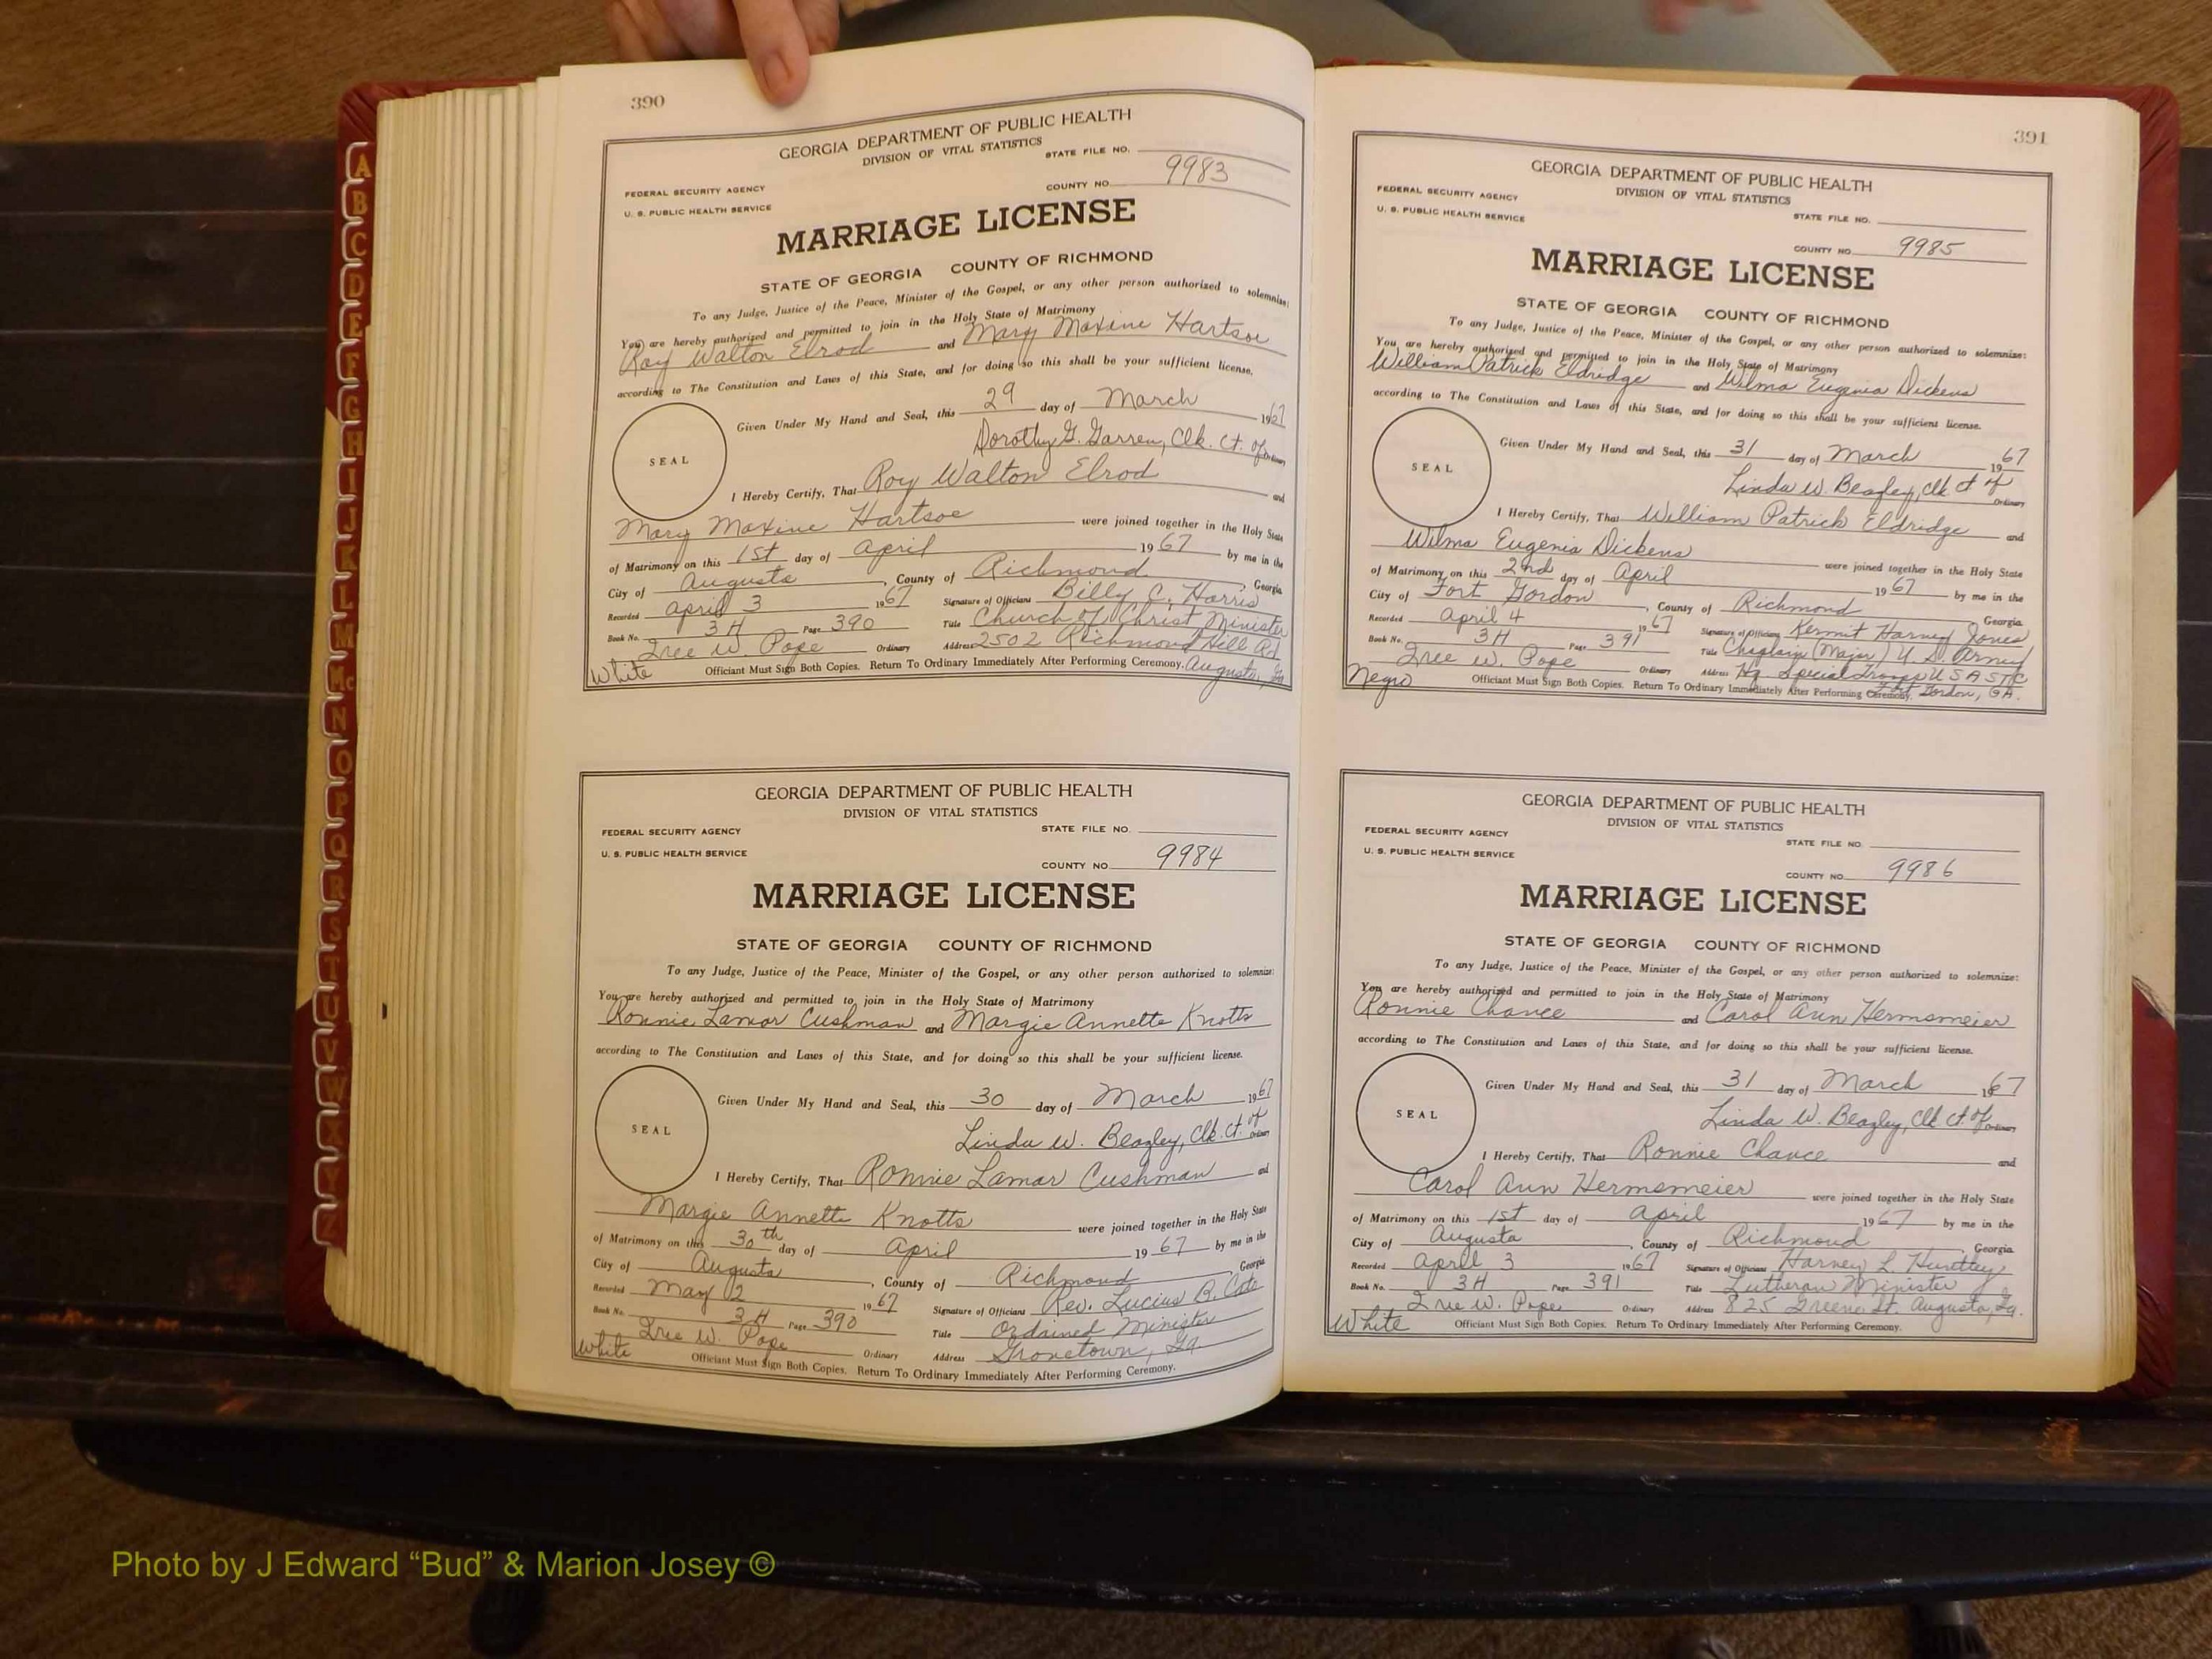 390
GEORGIA DEPARTMENT OF PUBLIC HEALTH
DIVISION OF VITAL STATISTICS
STATE FILE NO.
FEDERAL SECURITY AGENCY
U. S. PUBLIC HEALTH SERVICE
COUNTY NO. 9983
MARRIAGE LICENSE
STATE OF GEORGIA COUNTY OF RICHMOND
To any Judge, Justice of the Peace, Minister of the Gospel, or any other person authorized to solemnize:
You are hereby authorized and permitted to join in the Holy State of Matrimony
Roy Walton Elrod and Mary Maxine Hartsoe
according to The Constitution and Laws of this State, and for doing so this shall be your sufficient license.
Given Under My Hand and Seal, this 29 day of March 1967
SEAL
Dorothy G. Garren, Clk. Ct. of Ordinary
I Hereby Certify, That Roy Walton Elrod and
Mary Maxine Hartsoe were joined together in the Holy State
of Matrimony on this 1st day of April 1967 by me in the
City of Augusta, County of Richmond, Georgia
Recorded April 3 1967 Signature of Officiant Billy C. Harris
Book No. 3H Page 390 Title Church of Christ Minister
Iree W. Pope Ordinary Address 2502 Richmond Hill Rd
White Officiant Must Sign Both Copies. Return To Ordinary Immediately After Performing Ceremony. Augusta, Ga
GEORGIA DEPARTMENT OF PUBLIC HEALTH
DIVISION OF VITAL STATISTICS
FEDERAL SECURITY AGENCY STATE FILE NO.
U. S. PUBLIC HEALTH SERVICE
COUNTY NO. 9984
MARRIAGE LICENSE
STATE OF GEORGIA COUNTY OF RICHMOND
To any Judge, Justice of the Peace, Minister of the Gospel, or any other person authorized to solemnize:
You are hereby authorized and permitted to join in the Holy State of Matrimony
Ronnie Lamar Cushman and Margie Annette Knotts
according to The Constitution and Laws of this State, and for doing so this shall be your sufficient license.
Given Under My Hand and Seal, this 30 day of March 1967
SEAL
Linda W. Beazley, Clk. Ct. of Ordinary
I Hereby Certify, That Ronnie Lamar Cushman and
Margie Annette Knotts were joined together in the Holy State
of Matrimony on this 30th day of April 1967 by me in the
City of Augusta, County of Richmond Georgia
Recorded May 2 1967 Signature of Officiant Rev. Lucius B. Cate
Book No. 3H Page 390 Title Ordained Minister
Iree W. Pope Ordinary Address Grovetown, Ga.
White Officiant Must Sign Both Copies. Return To Ordinary Immediately After Performing Ceremony.
391
GEORGIA DEPARTMENT OF PUBLIC HEALTH
DIVISION OF VITAL STATISTICS
FEDERAL SECURITY AGENCY
U. S. PUBLIC HEALTH SERVICE STATE FILE NO.
COUNTY NO. 9985
MARRIAGE LICENSE
STATE OF GEORGIA COUNTY OF RICHMOND
To any Judge, Justice of the Peace, Minister of the Gospel, or any other person authorized to solemnize:
You are hereby authorized and permitted to join in the Holy State of Matrimony
William Patrick Eldridge and Wilma Eugenia Dickens
according to The Constitution and Laws of this State, and for doing so this shall be your sufficient license.
Given Under My Hand and Seal, this 31 day of March 1967
SEAL
Linda W. Beazley, Clk Ct of Ordinary
I Hereby Certify, That William Patrick Eldridge and
Wilma Eugenia Dickens were joined together in the Holy State
of Matrimony on this 2nd day of April 1967 by me in the
City of Fort Gordon, County of Richmond Georgia
Recorded April 4 1967 Signature of Officiant Kermit Harvey Jones
Book No. 3H Page 391 Title Chaplain (Major) U. S. Army
Iree W. Pope Ordinary Address Hq. Special Troops USASTC
Negro Officiant Must Sign Both Copies. Return To Ordinary Immediately After Performing Ceremony. Fort Gordon, GA.
GEORGIA DEPARTMENT OF PUBLIC HEALTH
DIVISION OF VITAL STATISTICS
FEDERAL SECURITY AGENCY STATE FILE NO.
U. S. PUBLIC HEALTH SERVICE
COUNTY NO. 9986
MARRIAGE LICENSE
STATE OF GEORGIA COUNTY OF RICHMOND
To any Judge, Justice of the Peace, Minister of the Gospel, or any other person authorized to solemnize:
You are hereby authorized and permitted to join in the Holy State of Matrimony
Ronnie Chance and Carol Ann Hermsmeier
according to The Constitution and Laws of this State, and for doing so this shall be your sufficient license.
Given Under My Hand and Seal, this 31 day of March 1967
SEAL
Linda W. Beazley, Clk Ct. of Ordinary
I Hereby Certify, That Ronnie Chance and
Carol Ann Hermsmeier were joined together in the Holy State
of Matrimony on this 1st day of April 1967 by me in the
City of Augusta, County of Richmond, Georgia
Recorded April 3 1967 Signature of Officiant Harvey L. Huntley
Book No. 3H Page 391 Title Lutheran Minister
Iree W. Pope Ordinary Address 825 Greene St. Augusta, Ga.
White Officiant Must Sign Both Copies. Return To Ordinary Immediately After Performing Ceremony.
A
B
C
D
E
F
G
H
I
J
K
L
M
Mc
N
O
P
Q
R
S
T
U
V
W
X
Y
Z
Photo by J Edward “Bud” & Marion Josey ©